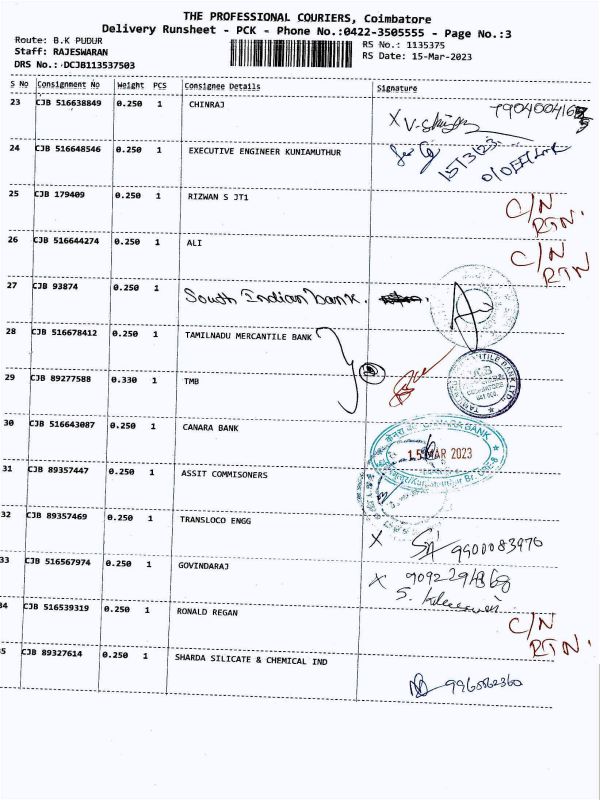 THE PROFESSIONAL COURIERS, Coimbatore
Delivery Runsheet - PCK - Phone No.:0422-3505555 - Page No.:3
Route: B.K PUDUR
RS No.: 1135375
Staff: RAJESWARAN
RS Date: 15-Mar-2023
DRS No.: DCJB113537503
S No Consignment No Weight PCS Consignee Details Signature
23 CJB 516638849 0.250 1 CHINRAJ
X
24 CJB 516648546 0.250 1 EXECUTIVE ENGINEER KUNIAMUTHUR
15/3/23
25 CJB 179409 0.250 1 RIZWAN S JT1 C/N
RTN.
26 CJB 516644274 0.250 1 ALI C/N
RTN
27 CJB 93874 0.250 1 South Indian bank.
28 CJB 516678412 0.250 1 TAMILNADU MERCANTILE BANK
29 CJB 89277588 0.330 1 TMB
30 CJB 516643087 0.250 1 CANARA BANK
15 MAR 2023
31 CJB 89357447 0.250 1 ASSIT COMMISONERS
32 CJB 89357469 0.250 1 TRANSLOCO ENGG
X 9900083970
33 CJB 516567974 0.250 1 GOVINDARAJ
X
34 CJB 516539319 0.250 1 RONALD REGAN C/N
RTN.
35 CJB 89327614 0.250 1 SHARDA SILICATE & CHEMICAL IND